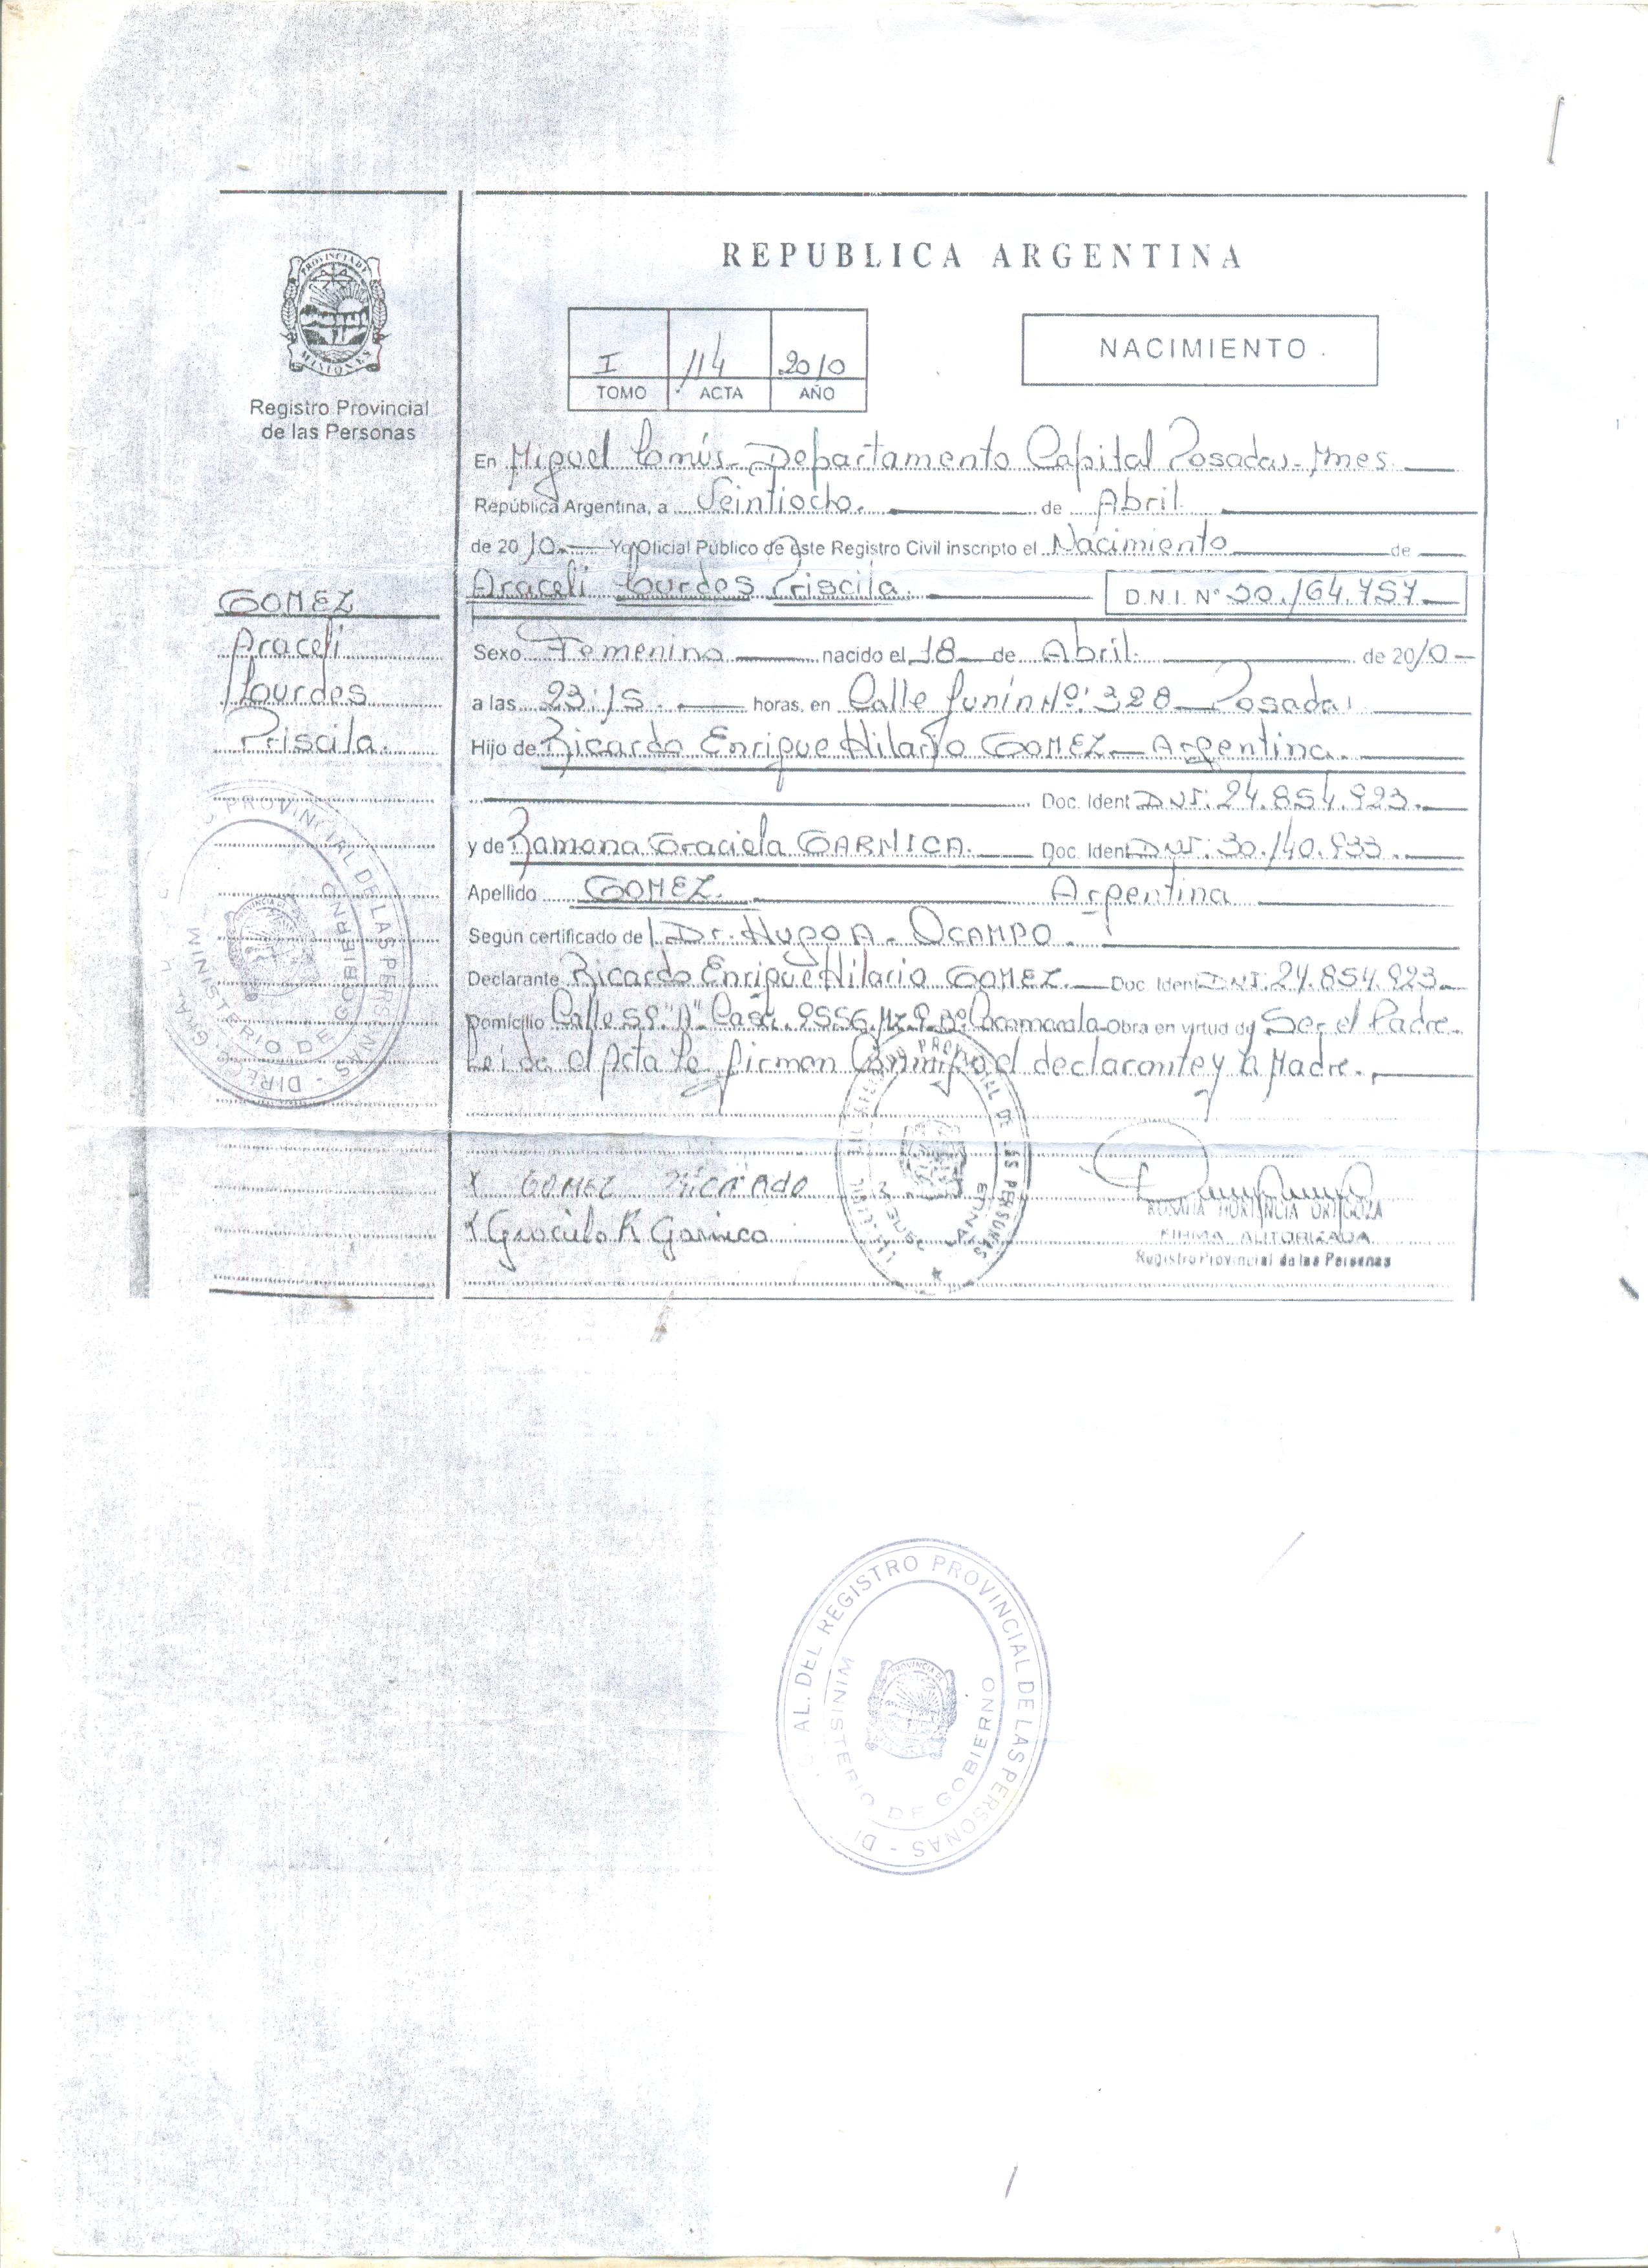 REPUBLICA ARGENTINA
PROVINCIA DE MISIONES
Registro Provincial
de las Personas
I 114 2010
TOMO ACTA AÑO
NACIMIENTO
En Miguel Lanús - Departamento Capital Posadas - Mnes.
República Argentina, a Veintiocho. de Abril
de 2010. Yo Oficial Público de este Registro Civil inscripto el Nacimiento de
Araceli Lourdes Priscila. D.N.I. Nº 50.164.757
GOMEZ
Araceli
Lourdes
Priscila.
Sexo Femenino nacido el 18 de Abril. de 2010
a las 23:15. horas, en Calle Junín Nº: 328 Posadas
Hijo de Ricardo Enrique Hilario GOMEZ - Argentina.
Doc. Ident DNI: 24.854.923.
y de Ramona Graciela GARNICA. Doc. Ident DNI: 30.140.933.
Apellido GOMEZ. Argentina
Según certificado de Dr. Hugo A. OCAMPO.
Declarante Ricardo Enrique Hilario GOMEZ. Doc. Ident DNI: 24.854.923.
Domicilio Calle 59 "A" Casa. 9556. Mz 9 Bº Cocomarola Obra en virtud de Ser el Padre.
Leída el Acta la firman Conmigo el declarante y la Madre.
X GOMEZ Ricardo
X Graciela R Garnica
ROSALIA HORTENCIA ORTIGOZA
FIRMA AUTORIZADA
Registro Provincial de las Personas
PROVINCIAL DE LAS PERSONAS - DIREC. GRAL.
MINISTERIO DE GOBIERNO
AL. DEL REGISTRO PROVINCIAL DE LAS PERSONAS - DI
MINISTERIO DE GOBIERNO